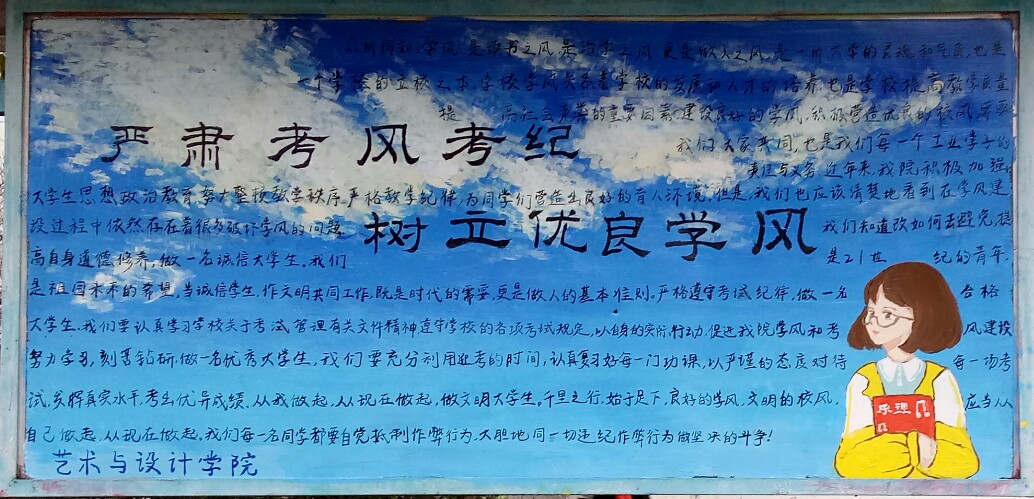 众所周知，学风是读书之风，是治学之风，更是做人之风，是一所大学的灵魂和气质，也是
一个学院的立校之本，学校学风关系着学校的发展和人才的培养也是学校提高教学质量
提 高社会声誉的重要因素，建设良好的学风，积极营造优良的校风需要
严肃考风考纪
我们大家共同，也是我们每一个工业学子的
责任与义务 近年来，我院积极加强
大学生思想政治教育，努力整校教学秩序，严格教学纪律，为同学们营造出良好的育人环境。但是，我们也应该清楚地看到在学风建
树立优良学风
设过程中依然存在着很多破坏学风的问题 我们知道改如何去避免，提
高自身道德修养，做一名诚信大学生。我们 是21世 纪的青年，
是祖国未来的希望，当诚信学生，作文明共同工作，既是时代的需要，更是做人的基本准则。严格遵守考试纪律，做一名 合格
大学生。我们要认真学习学校关于考试管理有关文件精神遵守学校的各项考试规定，以自身的实际行动，促进我院学风和考 风建设
努力学习，刻苦钻研，做一名优秀大学生，我们要充分利用近考的时间，认真复习好每一门功课，以严谨的态度对待 每一场考
试，发挥真实水平，考出优异成绩。从我做起，从现在做起，做文明大学生。千里之行，始于足下，良好的学风，文明的校风， 应当从
自己做起，从现在做起。我们每一名同学都要自觉抵制作弊行为，大胆地同一切违纪作弊行为做坚决的斗争！
艺术与设计学院
乐理